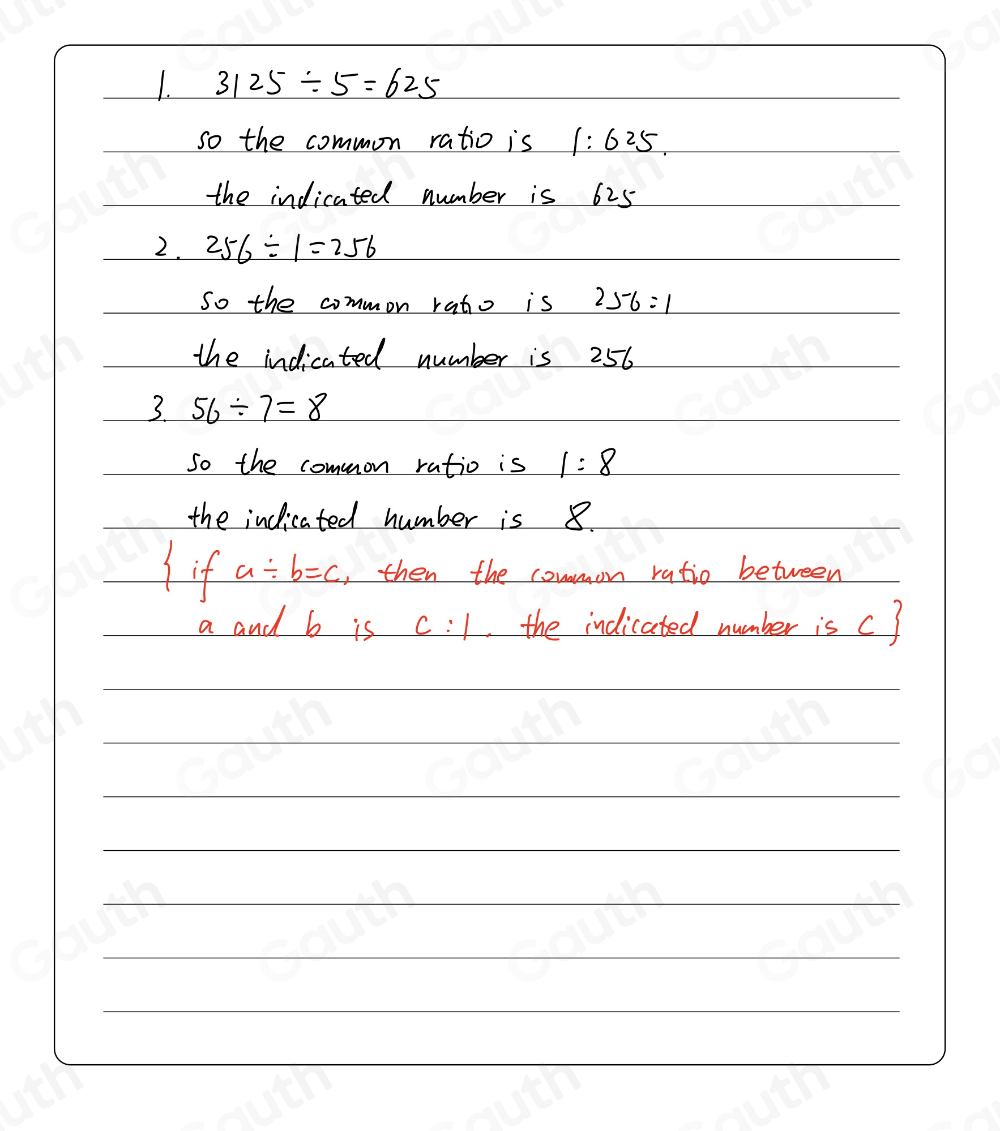 1. 3125 ÷ 5 = 625
so the common ratio is 1:625.
the indicated number is 625
2. 256 ÷ 1 = 256
so the common ratio is 256:1
the indicated number is 256
3. 56 ÷ 7 = 8
so the common ratio is 1:8
the indicated number is 8.
{ if a ÷ b = c, then the common ratio between
a and b is c:1. the indicated number is c }